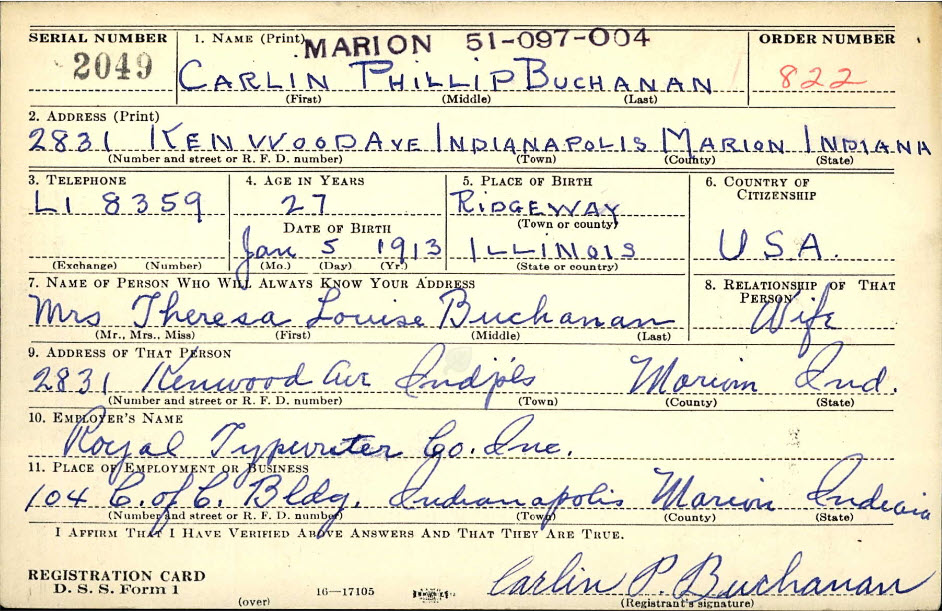 SERIAL NUMBER 1. NAME (Print) MARION 51-097-004 ORDER NUMBER
2049 CARLIN PHILLIP BUCHANAN 822
(First) (Middle) (Last)
2. ADDRESS (Print)
2831 KENWOOD AVE INDIANAPOLIS MARION INDIANA
(Number and street or R. F. D. number) (Town) (County) (State)
3. TELEPHONE 4. AGE IN YEARS 5. PLACE OF BIRTH 6. COUNTRY OF CITIZENSHIP
LI 8359 27 RIDGEWAY
(Town or county)
DATE OF BIRTH
Jan 5 1913 ILLINOIS USA.
(Exchange) (Number) (Mo.) (Day) (Yr.) (State or country)
7. NAME OF PERSON WHO WILL ALWAYS KNOW YOUR ADDRESS 8. RELATIONSHIP OF THAT PERSON
Mrs Theresa Louise Buchanan Wife
(Mr., Mrs., Miss) (First) (Middle) (Last)
9. ADDRESS OF THAT PERSON
2831 Kenwood Ave Ind'pls Marion Ind.
(Number and street or R. F. D. number) (Town) (County) (State)
10. EMPLOYER'S NAME
Royal Typewriter Co. Inc.
11. PLACE OF EMPLOYMENT OR BUSINESS
104 C. of C. Bldg. Indianapolis Marion Indiana
(Number and street or R. F. D. number) (Town) (County) (State)
I AFFIRM THAT I HAVE VERIFIED ABOVE ANSWERS AND THAT THEY ARE TRUE.
REGISTRATION CARD
D. S. S. Form 1 16—17105 Carlin P. Buchanan
(over) (Registrant's signature)